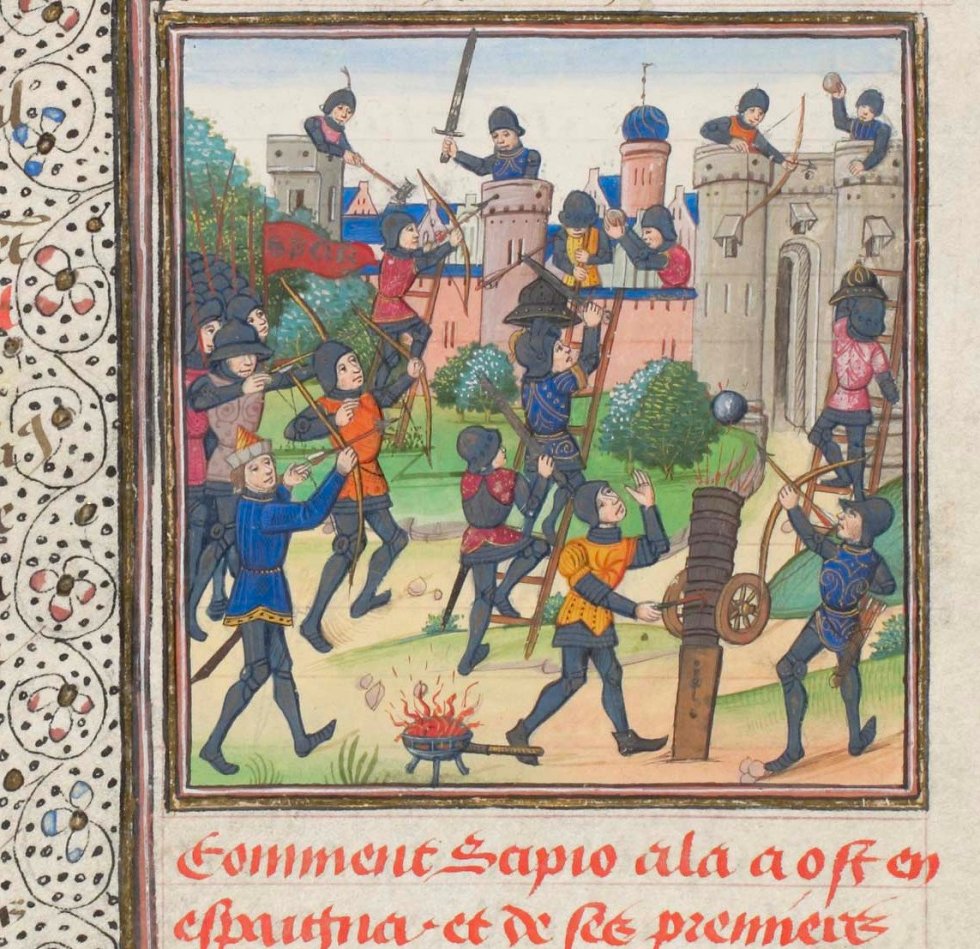 Comment Scipio ala a ost en
espaigna · et de ses premiers